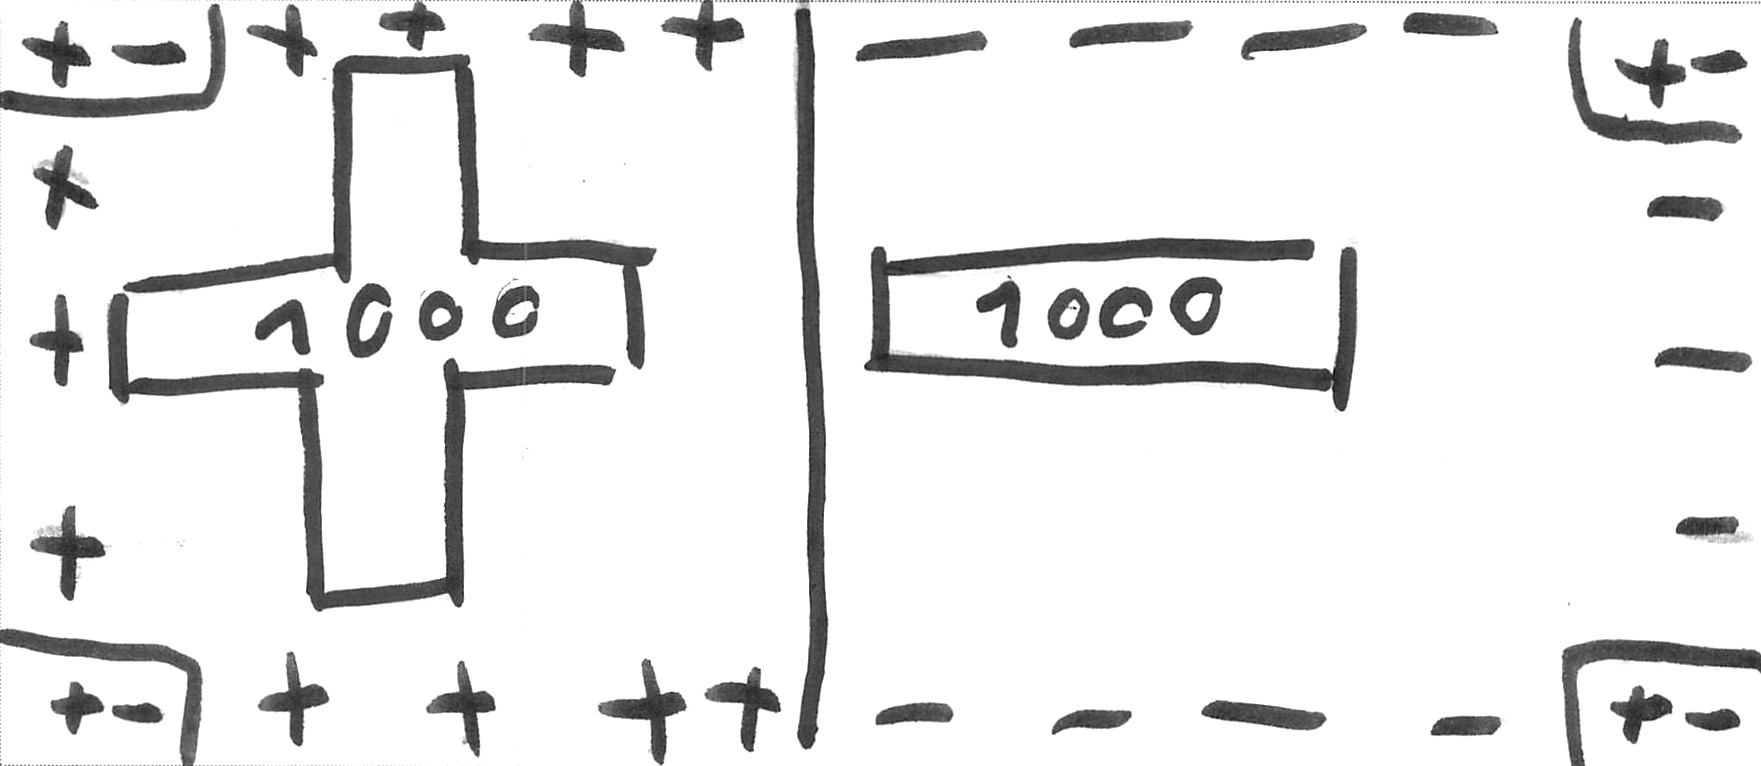 + - + + + + - - - - + -
+ -
+ 1000 1000 -
+ -
+ - + + + + - - - - + -